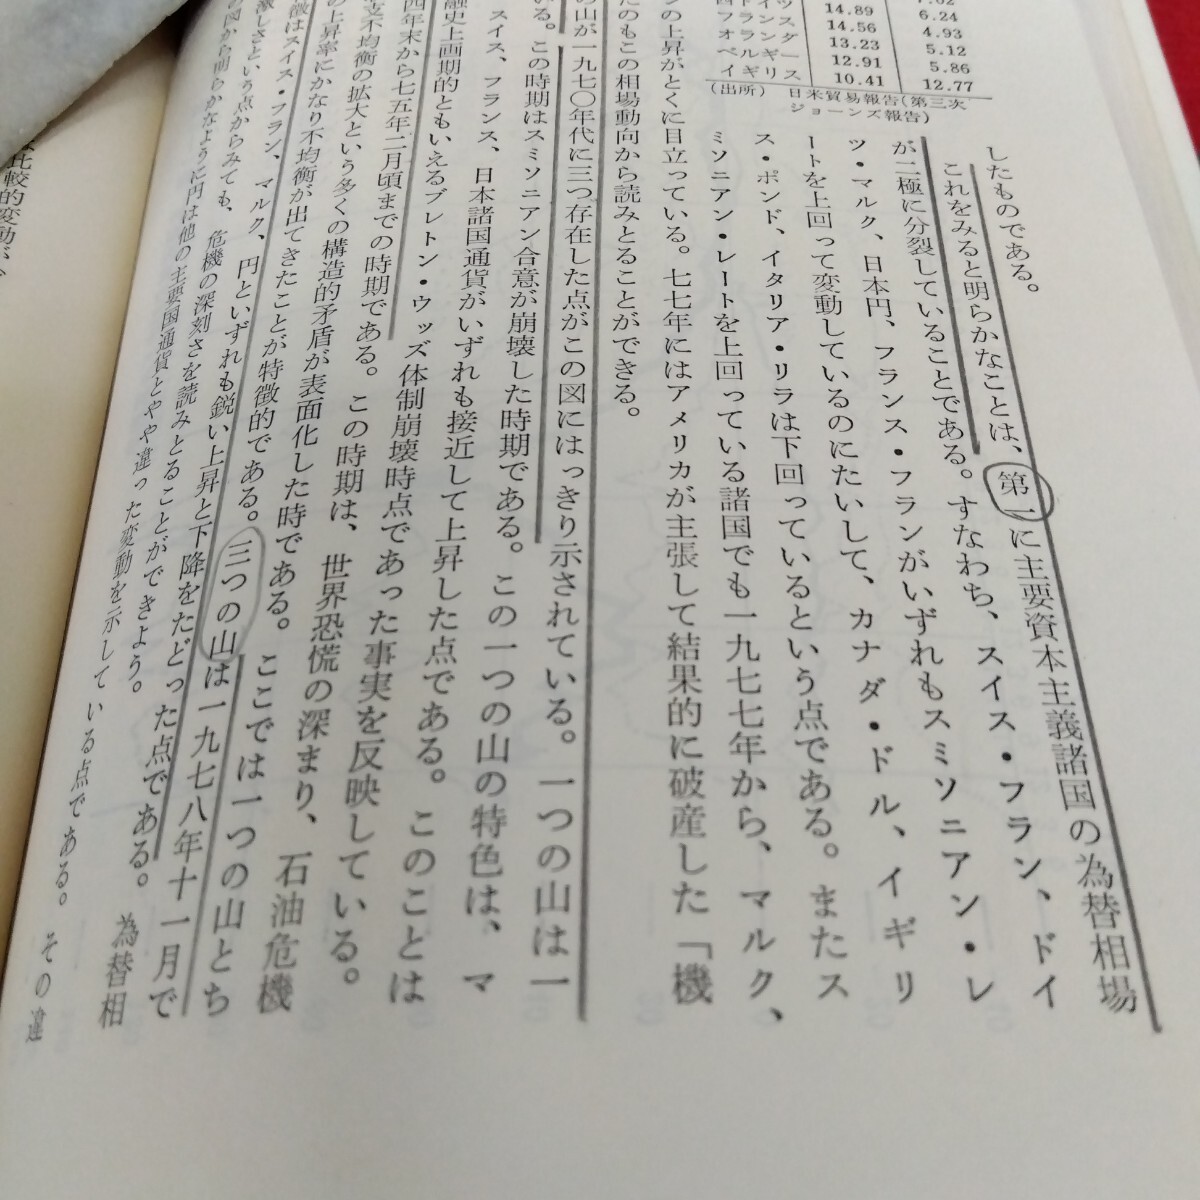 14.89
14.56
13.23
12.91
10.41
6.24
4.93
5.12
5.86
12.77
イギリス
(出所) 日米貿易報告(第三次
ジョーンズ報告)
したものである。
これをみると明らかなことは、第一に主要資本主義諸国の為替相場
が二極に分裂していることである。すなわち、スイス・フラン、ドイ
ツ・マルク、日本円、フランス・フランがいずれもスミソニアン・レ
ートを上回って変動しているのにたいして、カナダ・ドル、イギリ
ス・ポンド、イタリア・リラは下回っているという点である。またス
ミソニアン・レートを上回っている諸国でも一九七七年から、マルク、
ンの上昇がとくに目立っている。七七年にはアメリカが主張して結果的に破産した「機
たのもこの相場動向から読みとることができる。
の山が一九七〇年代に三つ存在した点がこの図にはっきり示されている。一つの山は一
いる。この時期はスミソニアン合意が崩壊した時期である。この一つの山の特色は、マ
スイス、フランス、日本諸国通貨がいずれも接近して上昇した点である。このことは
融史上画期的ともいえるブレトン・ウッズ体制崩壊時点であった事実を反映している。
四年末から七五年二月頃までの時期である。この時期は、世界恐慌の深まり、石油危機
支不均衡の拡大という多くの構造的矛盾が表面化した時である。ここでは一つの山とち
の上昇率にかなり不均衡が出てきたことが特徴的である。三つの山は一九七八年十一月で
徴はスイス・フラン、マルク、円といずれも鋭い上昇と下降をたどった点である。為替相
激しさという点からみても、危機の深刻さを読みとることができよう。
の図から明らかなように円は他の主要国通貨とやや違った変動を示している点である。その違
比較的変動が